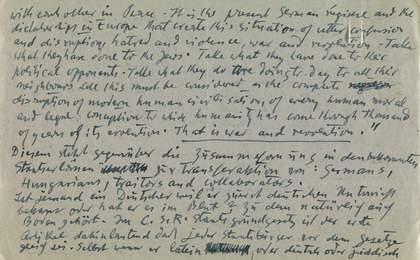 with each other in Peace. It is the present German regime and the
dictatorships in Europe that create this situation of utter confusion
and disruption, hatred and violence, war and revolution. Take
what they have done to the Jews. Take what they have done to their
political opponents. Take what they do doing to-day to all their
neighbours all this must be considered as the complete
disruption of modern human civilisation, of every human moral
and legal conception to which humanity has come through thousand
of years of its evolution. That is war and revolution."
Diesem steht gegenüber die Zusammenfassung in den bekannten
zur Transferaktion von: Germans,
Hungarians, traitors and collaborators.
ein Deutscher weil er zuerst deutschen Unterricht
oder hat er es im Blut? zu dem natürlich auch
Boden gehört. Im C.S.R. Staatsgrundgesetz ist der erste
Artikel dass jeder Staatsbürger vor dem Gesetze
gleich sei. Selbst wenn er latein oder deutsch oder jiddisch